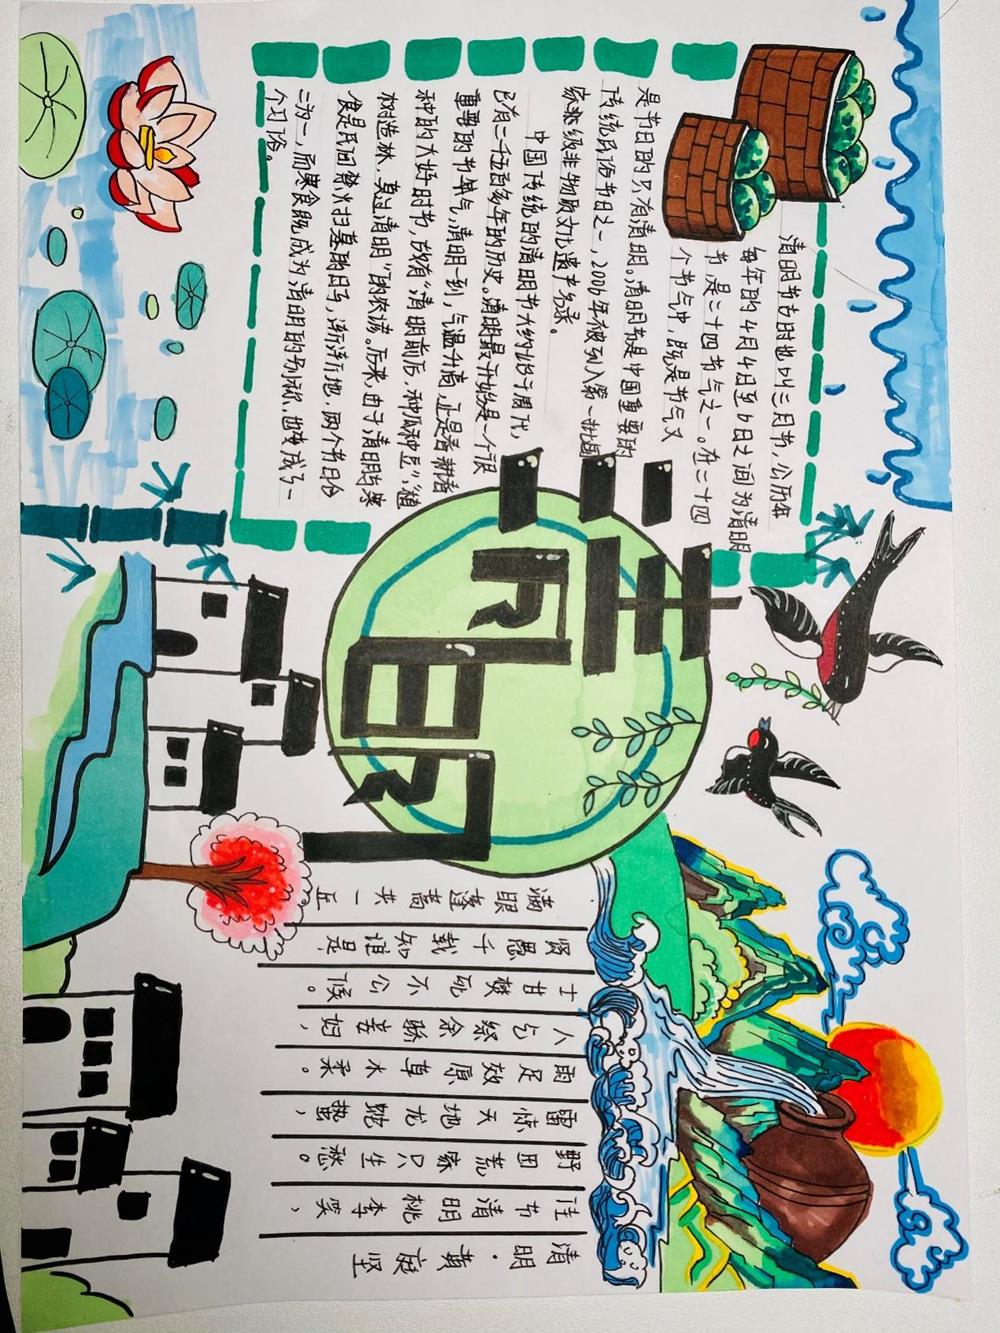 清明节古时也叫三月节,公历年
每年的4月4日至6日之间为清明
节,是二十四节气之一。在二十四
个节气中,既是节气又
是节日的只有清明。清明节是中国重要的
传统民俗节日之一,2006年被列入第一批国
家级非物质文化遗产名录。
中国传统的清明节大约始于周代,
已有二千五百多年的历史。清明最开始是一个很
重要的节气,清明一到,气温升高,正是春耕春
种的大好时节,故有“清明前后,种瓜种豆”,“植
树造林,莫过清明”的农谚。后来,由于清明与寒
食是民间禁火扫墓的日子,渐渐地,两个节日合
二为一,而寒食既成为清明的别称,也变成了一
个习俗。
清明
清明·黄庭坚
佳节清明桃李笑,
野田荒冢只生愁。
雷惊天地龙蛇蛰,
雨足效原草木柔。
人乞祭余骄妾妇,
士甘焚死不公候。
贤愚千载知谁是,
满眼蓬蒿共一丘